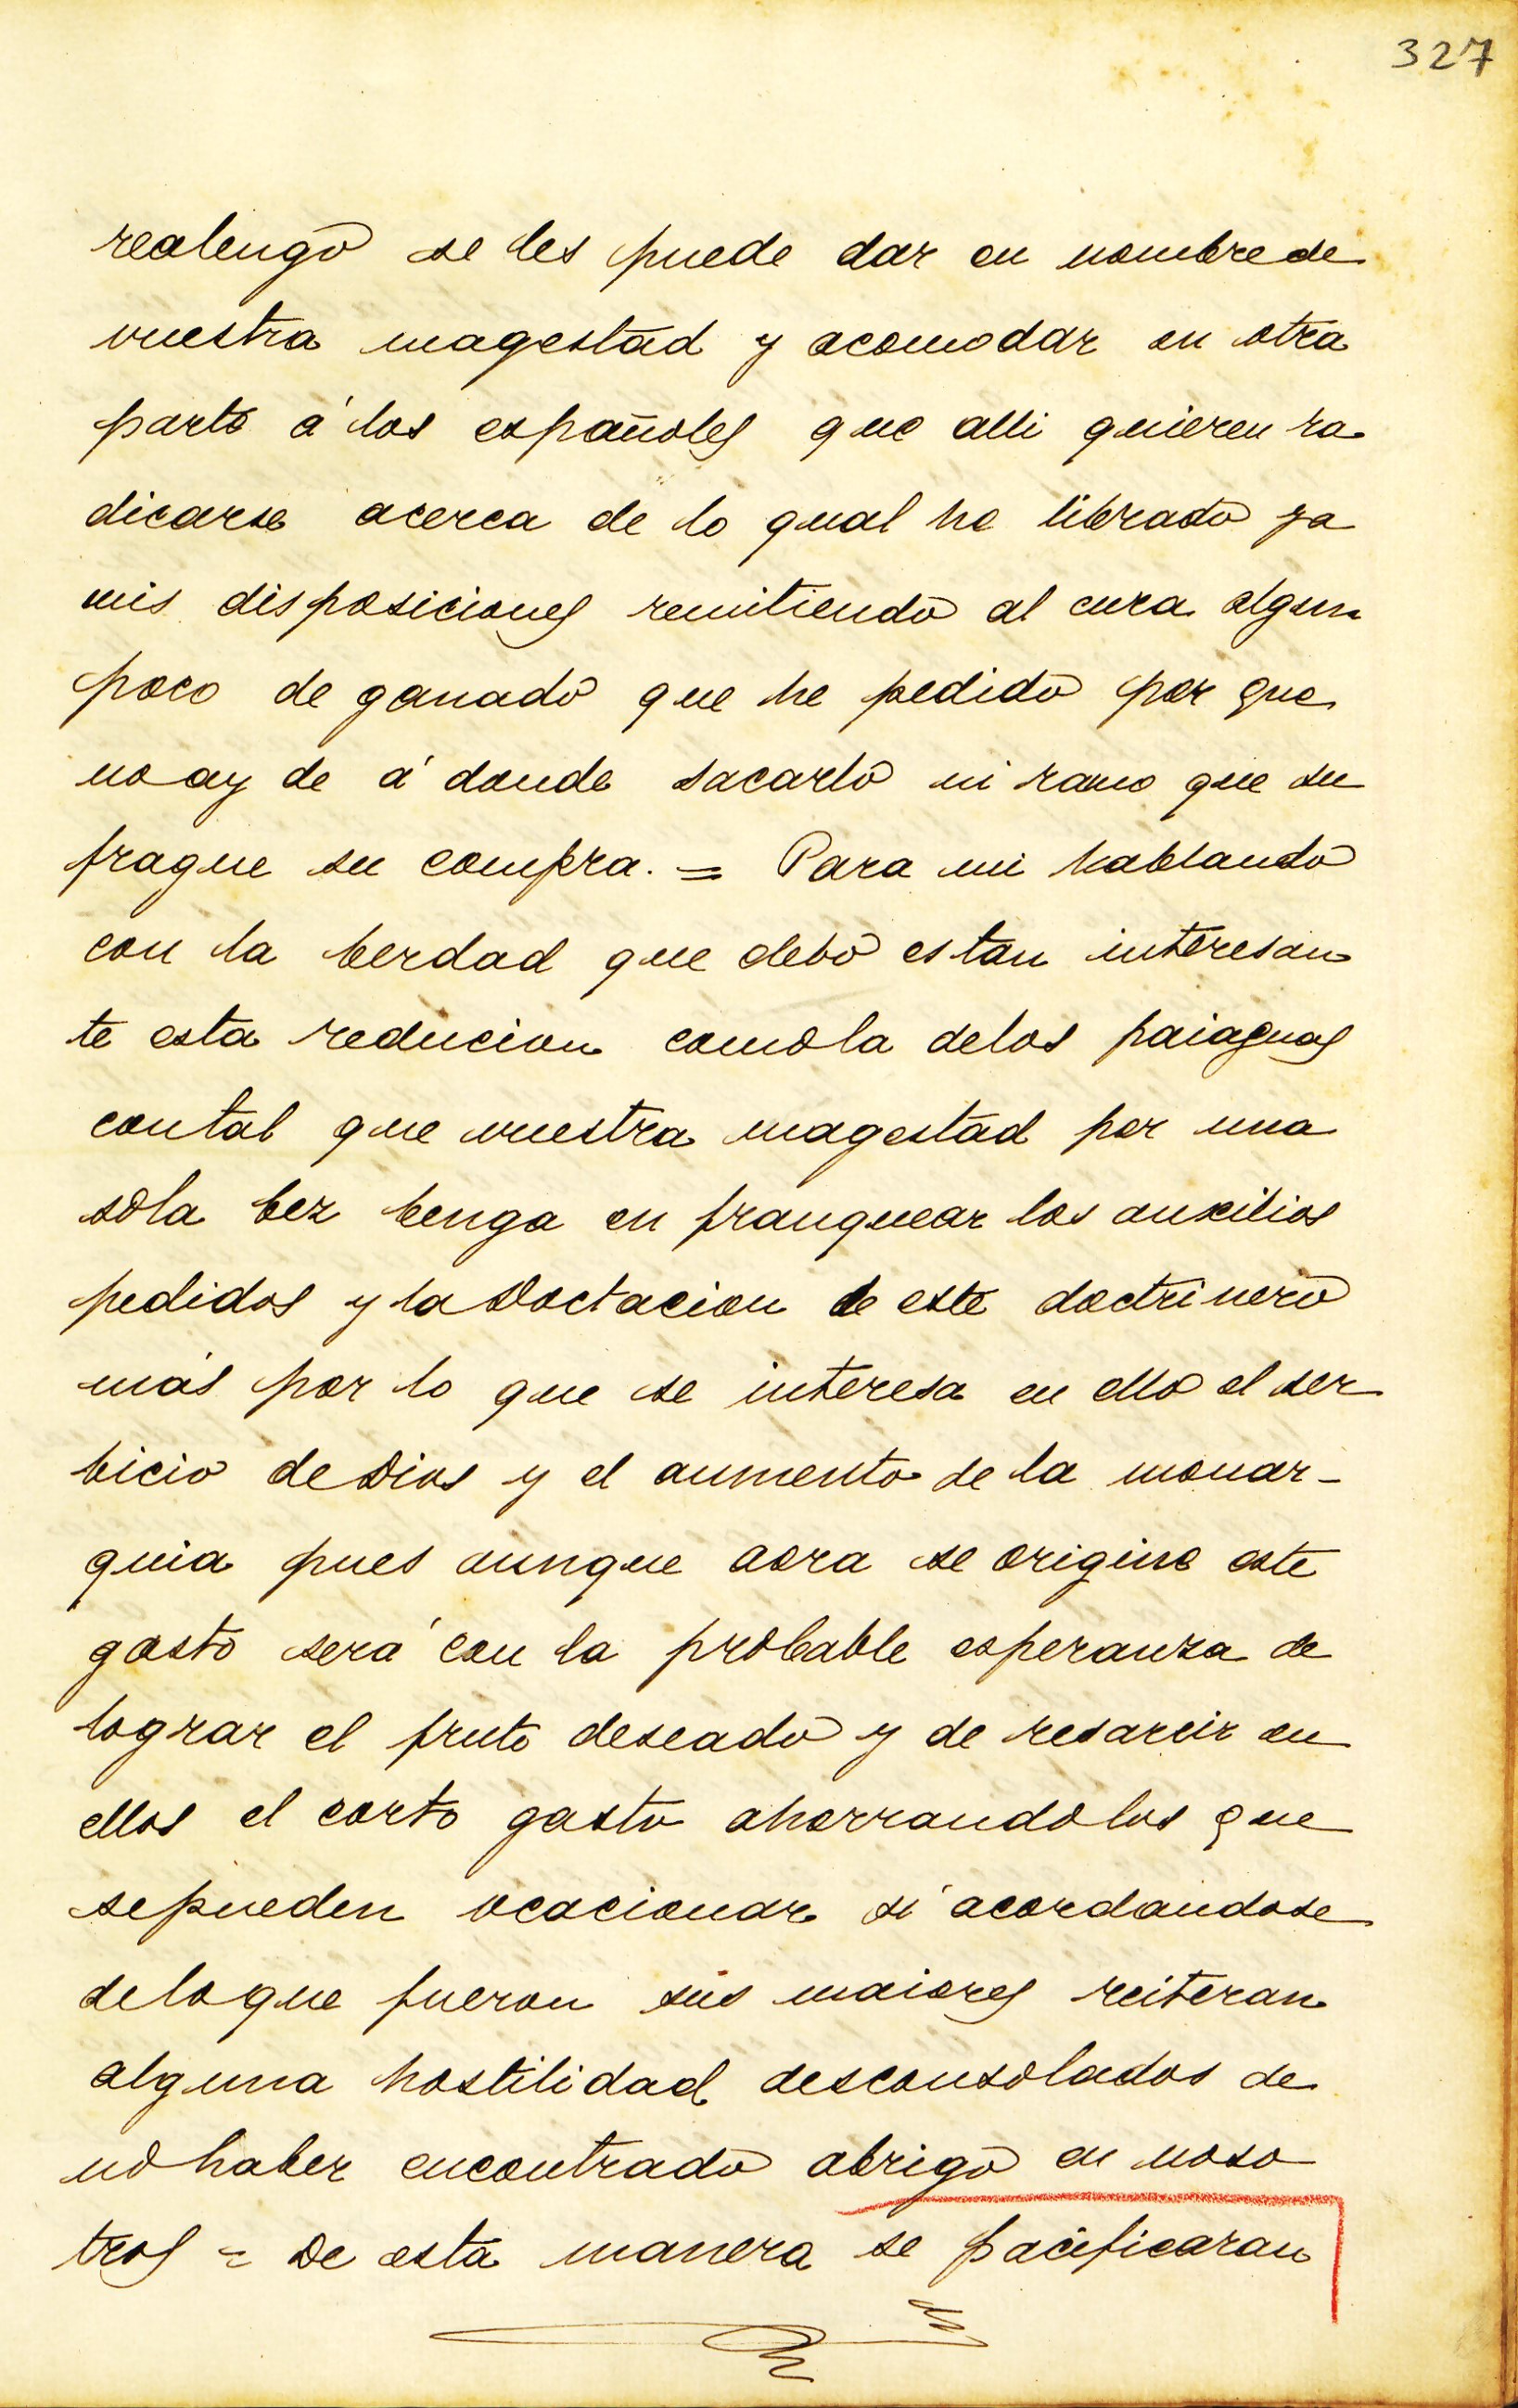 327
realengo se les puede dar en nombre de
vuestra magestad y acomodar en otra
parte á los españoles que alli quieren ra
dicarse acerca de lo qual he librado ya
mis disposiciones remitiendo al cura algun
poco de ganado que he pedido por que
no ay de á donde sacarlo ni ramo que su
frague su compra. = Para mi hablando
con la berdad que debo es tan interesan
te esta reducion como la delos paiaguas
contal que vuestra magestad por una
sola bez benga en franquear los auxilios
pedidos y la Doctacion de este doctrinero
más por lo que se interesa en ello el ser
bicio de Dios y el aumento de la monar-
quia pues aunque aora se origine este
gasto será con la probable esperanza de
lograr el fruto deseado y de resarcir en
ellos el corto gasto ahorrandolos que
sepueden ocacionar si acordandose
delo que fueron sus maiores reiteran
alguna hostilidad desconsolados de
no haber encontrado abrigo en noso
tros = De esta manera se pacificaran